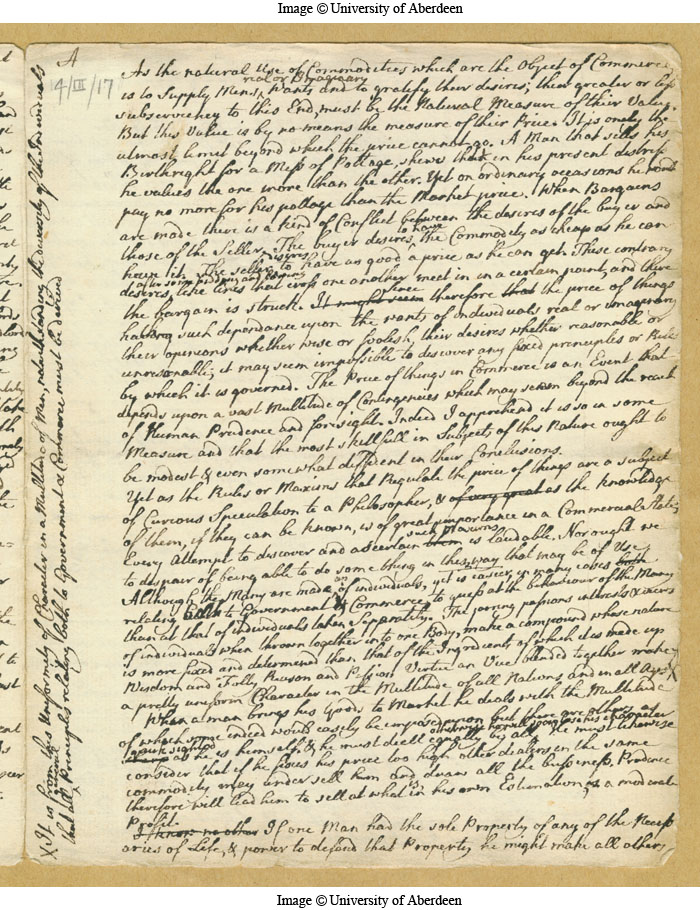 Image © University of Aberdeen
A
4/III/17
As the natural Use of Commodities which are the Object of Commerce
real or Imaginary
is to Supply Mens Wants and to gratify their desires; their greater or less
subserviency to this End, must be the Natural Measure of their Value.
But this Value is by no means the measure of their Price. It is onely the
utmost limit beyond which the price cannot go. A Man that sells his
Birthright for a Mess of Pottage, shews that in his present distress
he values the one more than the other. Yet on ordinary occasions he
pay no more for his pottage than the Market price. When Bargains
are made there is a kind of Conflict between the desires of the buyer and
to have
those of the Seller. The buyer desires the Commodity as cheap as he can
desires
have it. The Seller to have as good a price as he can get. These contrary
after some
desires, like lines that cross one another meet in a certain point, and there
since
the bargain is struck. It might seem therefore that the price of things
having such dependance upon the wants of individuals real or imaginary
their opinions whether wise or foolish, their desires whether reasonable or
unreasonable; it may seem impossible to discover any fixed principles or Rule
by which it is governed. The Price of things in Commerce is an Event that
depends upon a vast Multitude of Contingencies which may seem beyond the reach
of Human Prudence and foresight. Indeed I apprehend it is so in some
Measure and that the most skillfull in Subjects of this Nature ought to
be modest & even somewhat diffident in their Conclusions.
Yet as the Rules or Maxims that Regulate the price of things are a subject
of Curious Speculation to a Philosopher, & of very great as the knowledge
of them, if they can be known, is of great importance in a Commercial State;
such Maxims
Every Attempt to discover and ascertain them is laudable. Nor ought we
to despair of being able to do some thing in this way that may be of Use
Although the Many are made of individuals, yet is easier in many cases both
relating to Government & Commerce to guess at the behaviour of the Many
than at that of individuals taken Separately. The jarring passions interests & views
of individuals when thrown together into one Body, make a compound whose nature
is more fixed and determined than that of the Ingredients of which it is made up
Wisdom and Folly Reason and Passion Virtue an Vice blended together make
a pretty uniform Character in the Multitude of all Nations and in all Ages X
When a man brings his Goods to Market he deals with the Multitude
of which some indeed would easily be imposed upon but there are others as
quick sighted as he is himself & he must deall equally by all. He must likewise
consider that if he fixes his price too high other dealers in the same
commodity may under sell him and draw all the business. Prudence
therefore will lead him to sell at what is in his own Estimation, a moderate
Profit.
I know no other If one Man had the sole Property of any of the Necess
aries of Life, & power to defend that Property he might make all others
X It is from this Uniformity of Character in a Multitude of Men, notwithstanding the diversity of the Individuals
that all Principles relating both to Government & Commerce must be derived
Image © University of Aberdeen